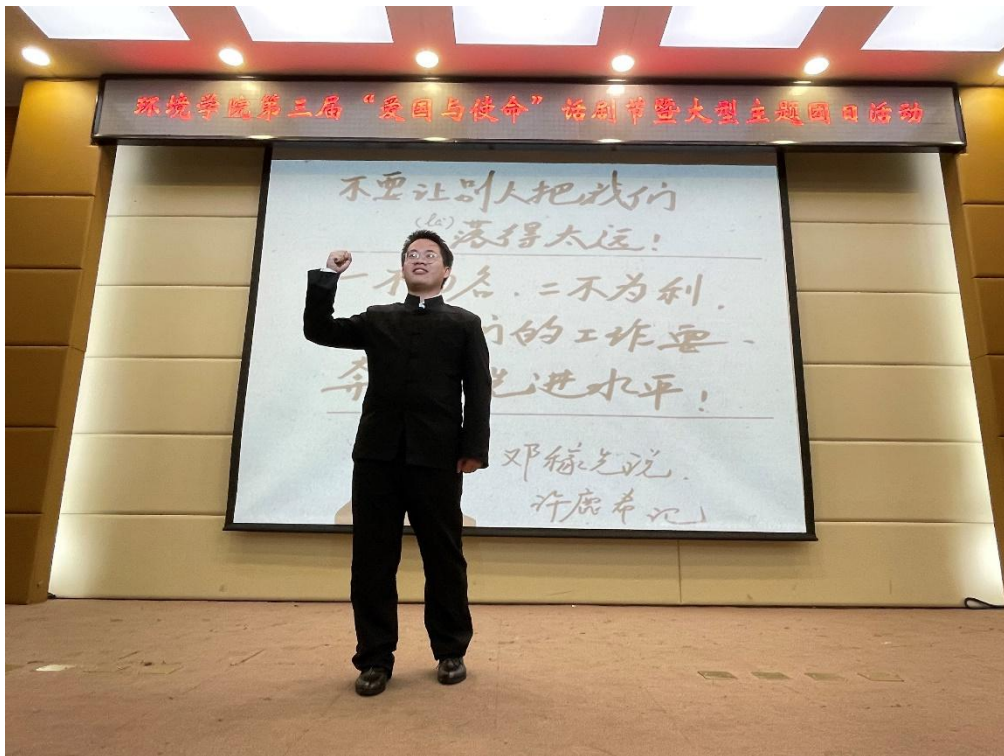 环境学院第三届“爱国与使命”话剧节暨大型主题团日活动
不要让别人把我们
(là)
落得太远！
一不为名．二不为利．
们的工作要、
奔 先进水平！
邓稼先说．
许鹿希记